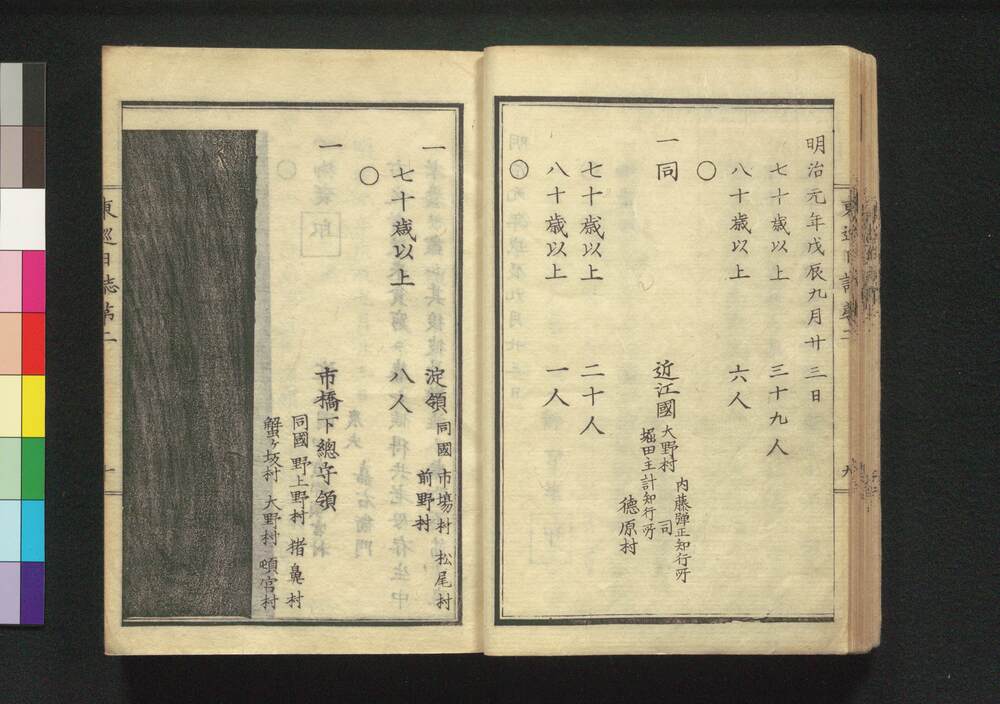 明治元年戊辰九月廿三日
七十歳以上 三十九人
〇八十歳以上 六人
一同 近江國 大野村 内藤弾正知行所
堀田主計知行所 同 徳原村
七十歳以上 二十人
〇八十歳以上 一人
一 淀領 同國 市場村 松尾村
前野村
〇七十歳以上 八人
一 市橋下總守領
同國 野上野村 猪鼻村
蟹ヶ坂村 大野村 頓宮村
東巡日誌第二